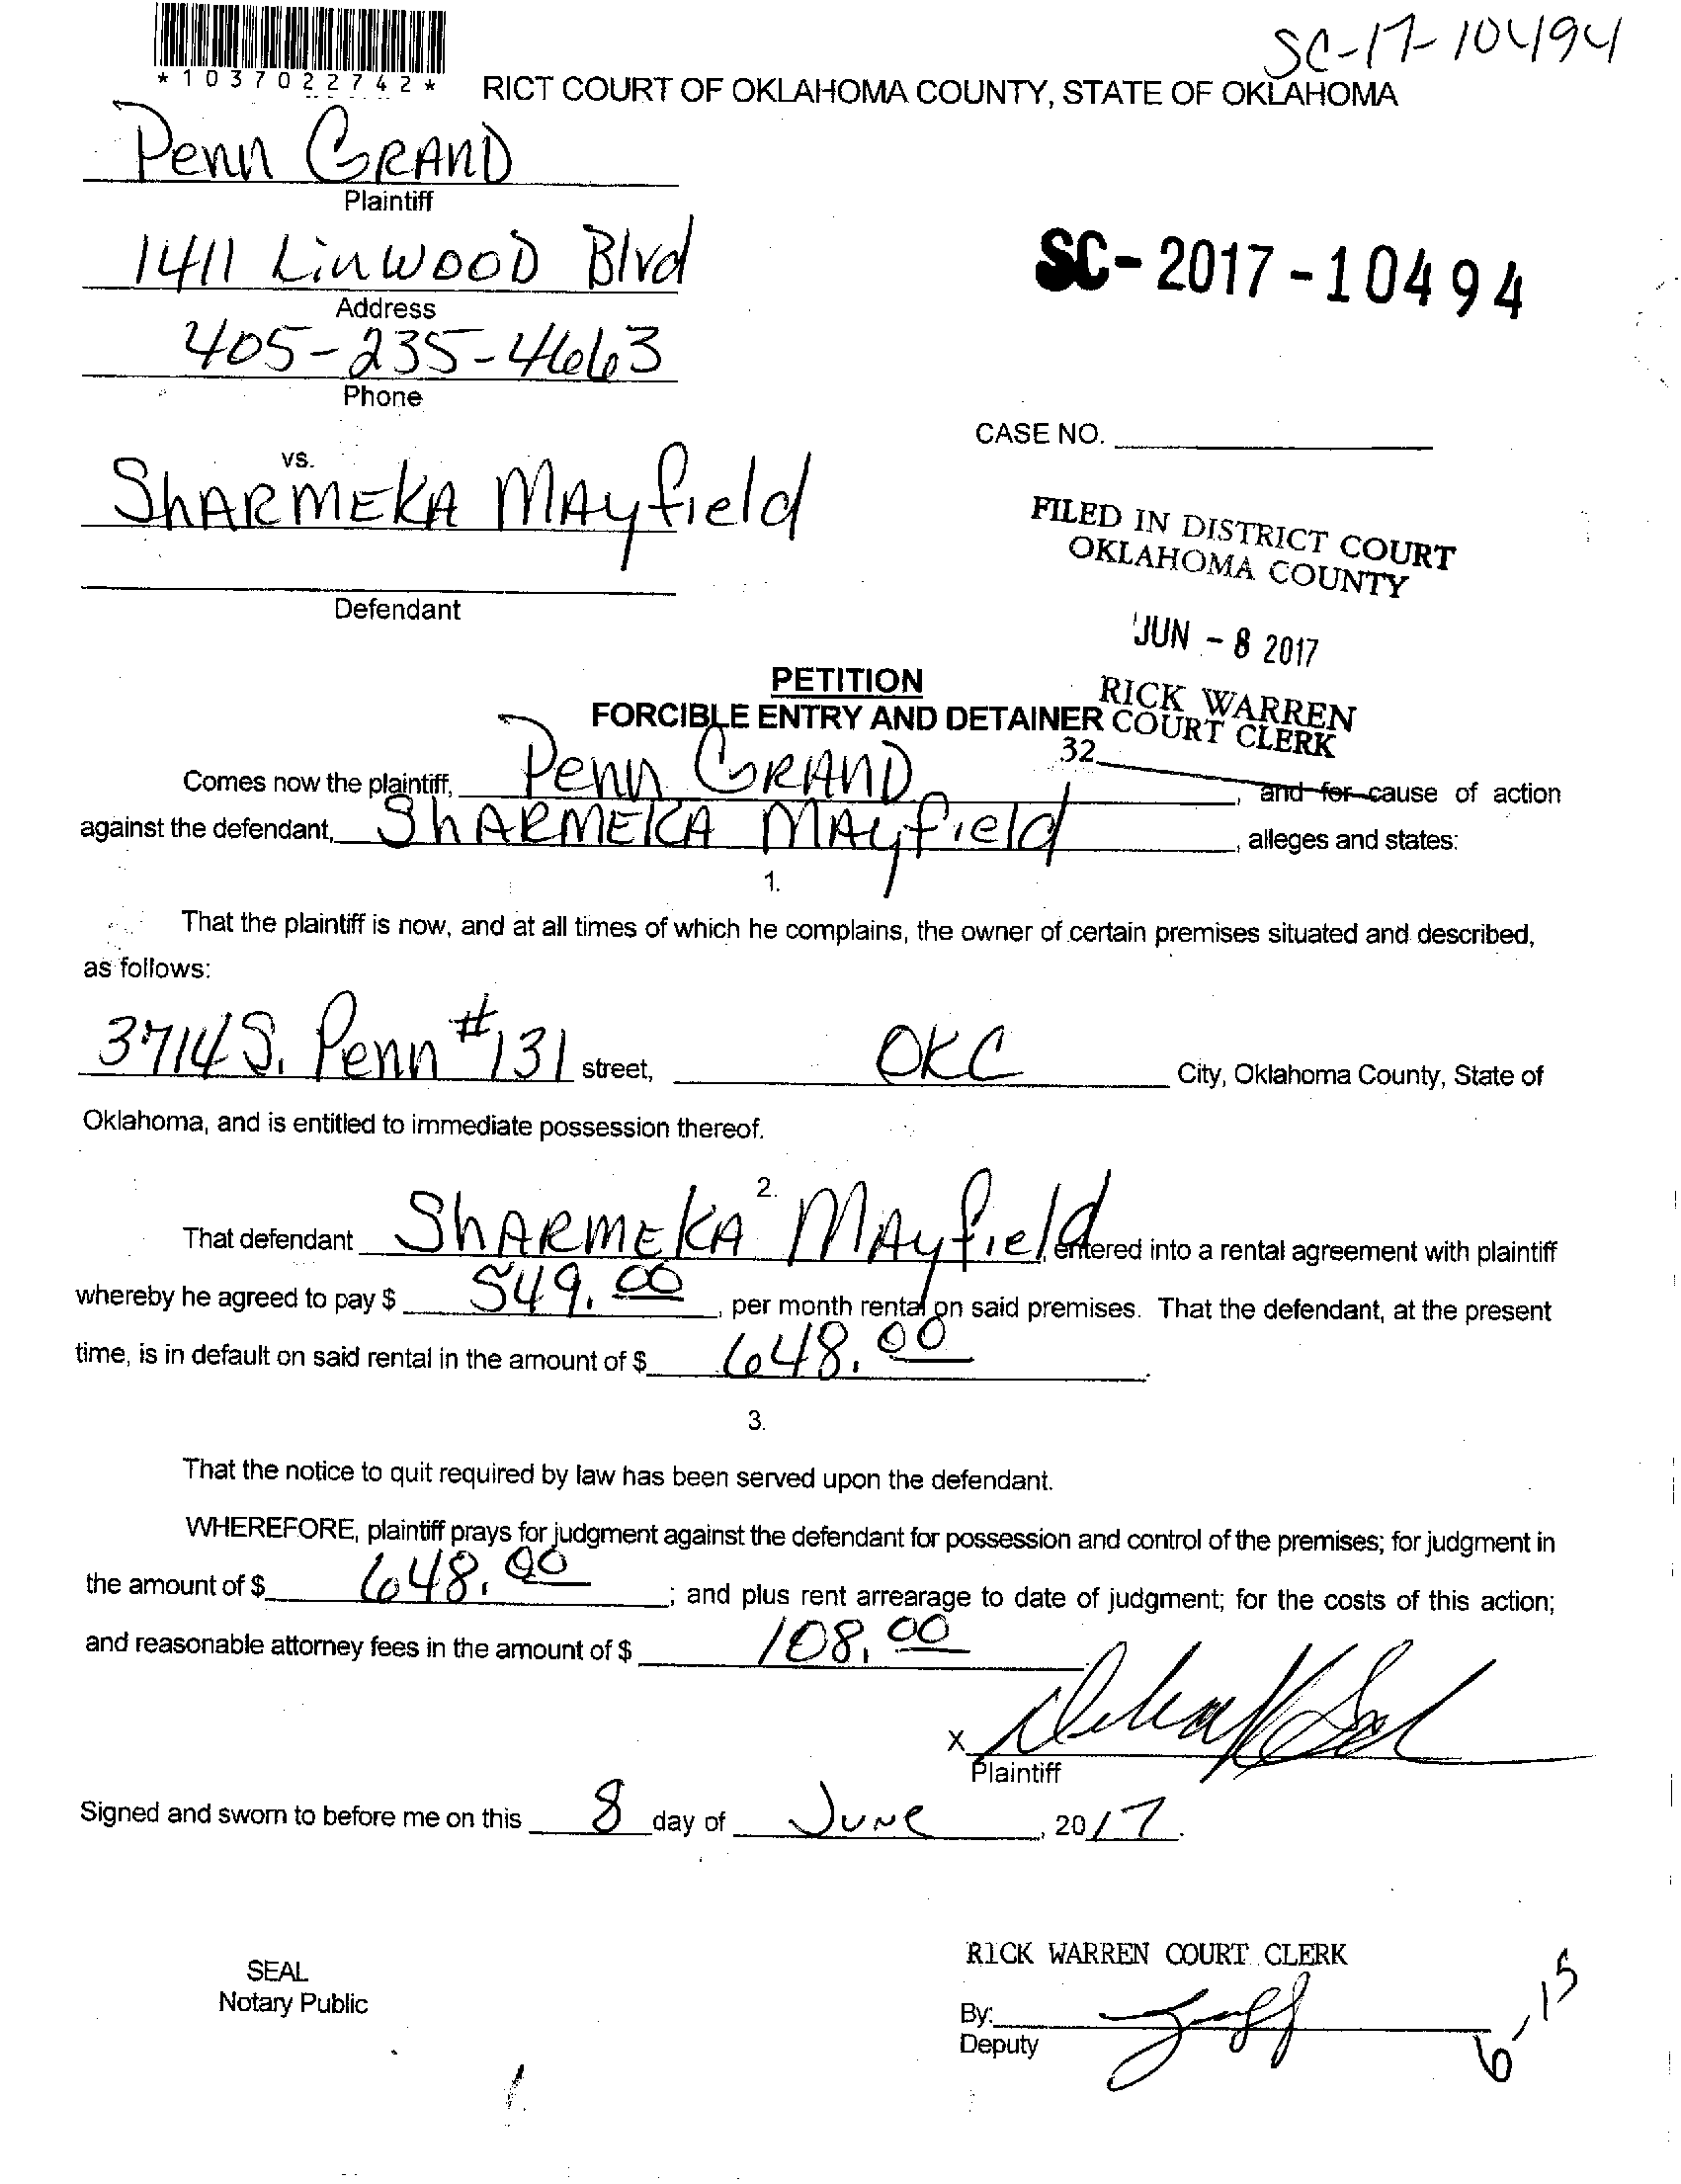 SC-17-10494
*1037022742*
RICT COURT OF OKLAHOMA COUNTY, STATE OF OKLAHOMA
Penn GRAND
Plaintiff
1411 LinwooD Blvd
Address
SC-2017-10494
405-235-4663
Phone
CASE NO.
vs.
ShARMEKA MAyfield
FILED IN DISTRICT COURT
OKLAHOMA COUNTY
Defendant
JUN - 8 2017
PETITION
RICK WARREN
FORCIBLE ENTRY AND DETAINER COURT CLERK
32
Comes now the plaintiff, Penn GRAND, and for cause of action
against the defendant, ShARMEKA MAyfield, alleges and states:
1.
That the plaintiff is now, and at all times of which he complains, the owner of certain premises situated and described,
as follows:
3714 S. Penn #131 street, OKC City, Oklahoma County, State of
Oklahoma, and is entitled to immediate possession thereof.
2.
That defendant ShARMEKA MAyfield, entered into a rental agreement with plaintiff
whereby he agreed to pay $ 549.00, per month rental on said premises. That the defendant, at the present
time, is in default on said rental in the amount of $ 648.00.
3.
That the notice to quit required by law has been served upon the defendant.
WHEREFORE, plaintiff prays for judgment against the defendant for possession and control of the premises; for judgment in
the amount of $ 648.00; and plus rent arrearage to date of judgment; for the costs of this action;
and reasonable attorney fees in the amount of $ 108.00
X
Plaintiff
Signed and sworn to before me on this 8 day of JUNE, 2017.
RICK WARREN COURT CLERK
SEAL
Notary Public
By:
Deputy
6-15